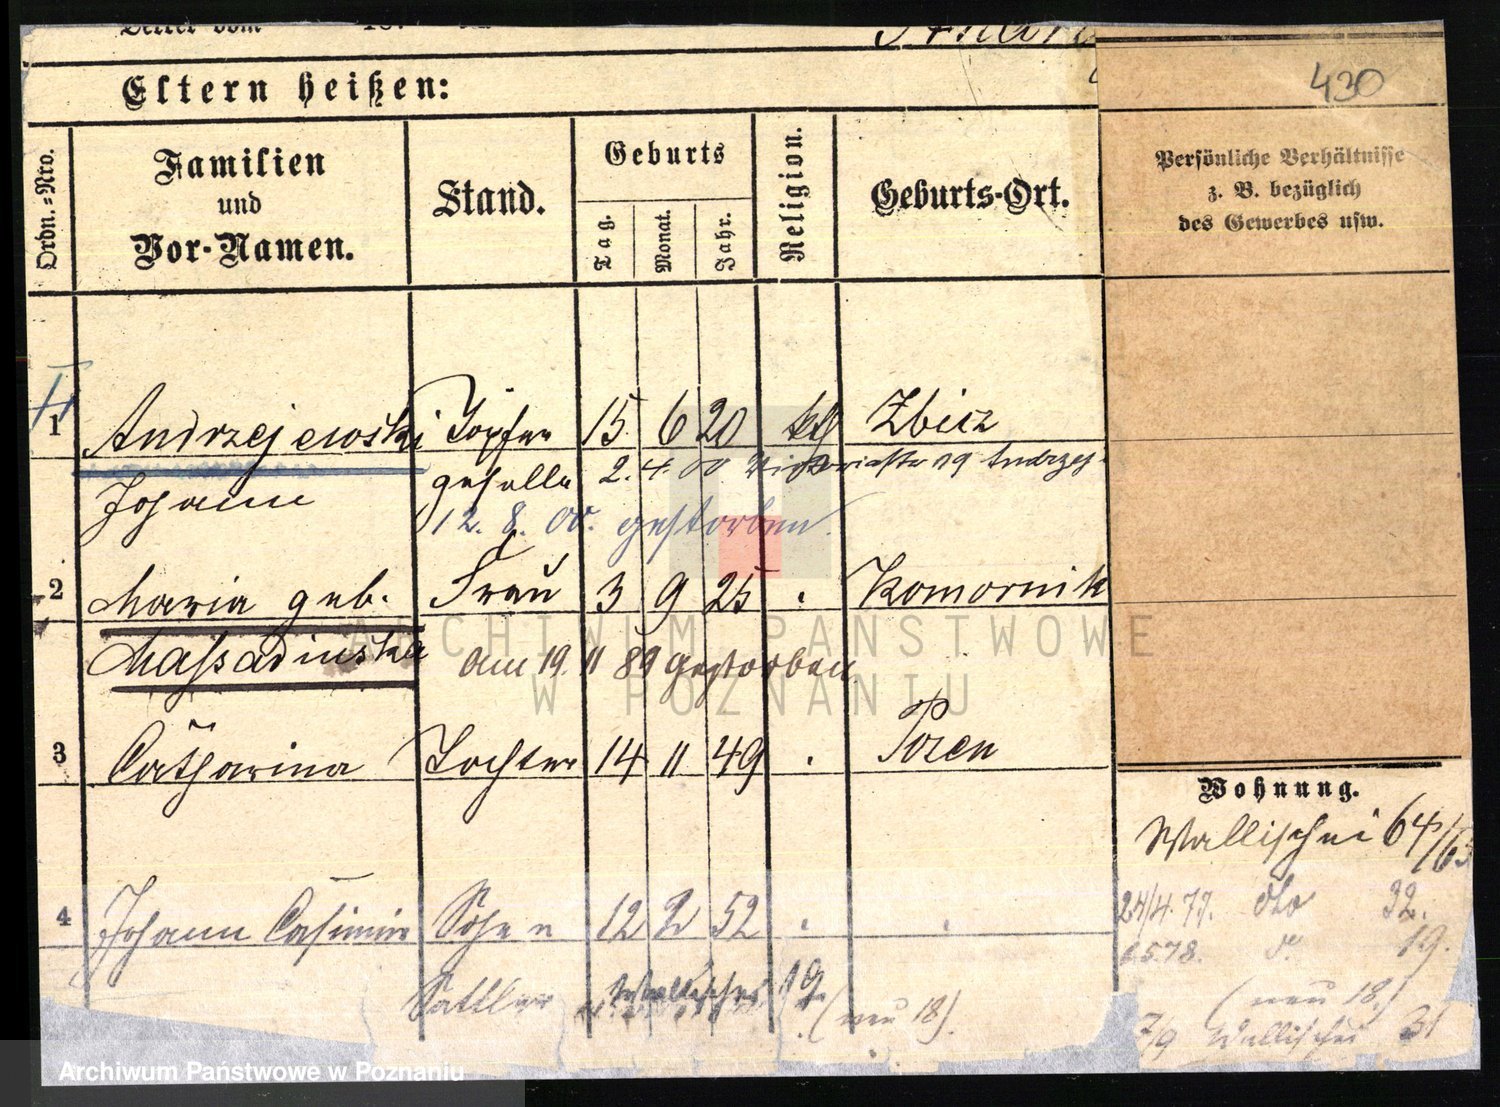 430
Eltern heißen:
Ordn.=Nro.
Familien
und
Vor-Namen.
Stand.
Geburts
Tag.
Monat.
Jahr.
Religion.
Geburts-Ort.
Persönliche Verhältnisse
z. B. bezüglich
des Gewerbes usw.
1 Andrzejewski Töpfer 15 6 20 kth Zbicz
Johann geselle 2. 4. 00 Victoriastr 19 Andrzej-
12. 8. 00. gestorben.
2 Maria geb. Frau 3 9 25 . Komornik
Massadinska am 19. 11 89 gestorben.
3 Catharina Tochter 14 11 49 . Posen
Wohnung.
Wallischei 64/63
4 Johann Casimir Sohn 12 2 52 . .
24/4.77. dto 32.
6578. d. 19.
Sattler Wallischei 19. (neu 18).
(neu 18)
7/9 Wallischei 31
ARCHIWUM PAŃSTWOWE
W POZNANIU
Archiwum Państwowe w Poznaniu